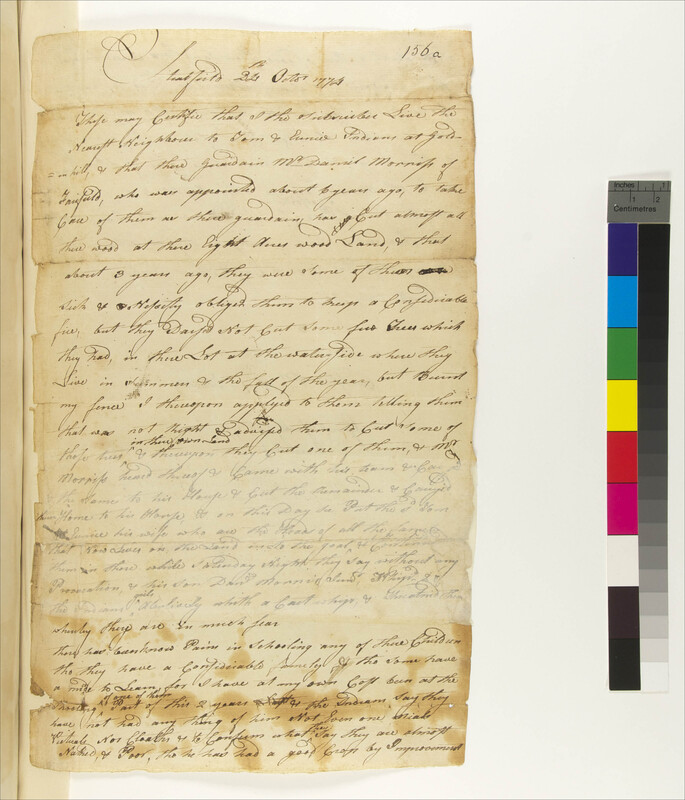 156a
Stratford 24th Octor 1774
These may Certifie that I the Subscriber Live the
Nearest Neighbour to Tom & Eunice Indians at Gold=
=en hill, & that there Guardain Mr Daniel Morriss of
Fairfield, who was appointed about 6 years ago, to take
Care of them as there guardain, has Cut almost all
there wood at there Eight Acres wood Land, & that
about 3 years ago, they were some of them
sick & Nesesity obliged them to keep a Considirable
fire, but they Darsd Not Cut some few Trees which
they had, in there Lot at the waterside where they
Live in Summer & the fall of the year, but Burnt
my fence I thereupon applyed to them telling them
that was not Right I advised them to Cut some of
those trees on their own Land & thereupon they Cut one of them, & Mr
Morriss heard thereof & Came with his team &
the Same to his House & Cut the remainder & Carried
them Home to his House & on this Day he Put the sd Tom
& Eunice his wife who are the of all the
that Now Lives on the Land in to the goal, &
them in there while Saturday Night they Say without any
Provocation, & his Son Danl Morriss Junr Whipt 2 of
the Indians with a Cart whip, &
whereby there are In much fear
there has been know Pains in Schooling any of there Children
tho they have a Considirable family & tho some have
a mind to Learn, for I have at my own Cost been at the
Part of one of them this 2 years & the Indians Say they
have not had any thing of him Not Even one meals
Victuals Nor Cloaths & to Confirm what they Say they are almost
Naked, & Poor, tho he has had a good Crop by Improvement
Inches
Centimetres
1
2